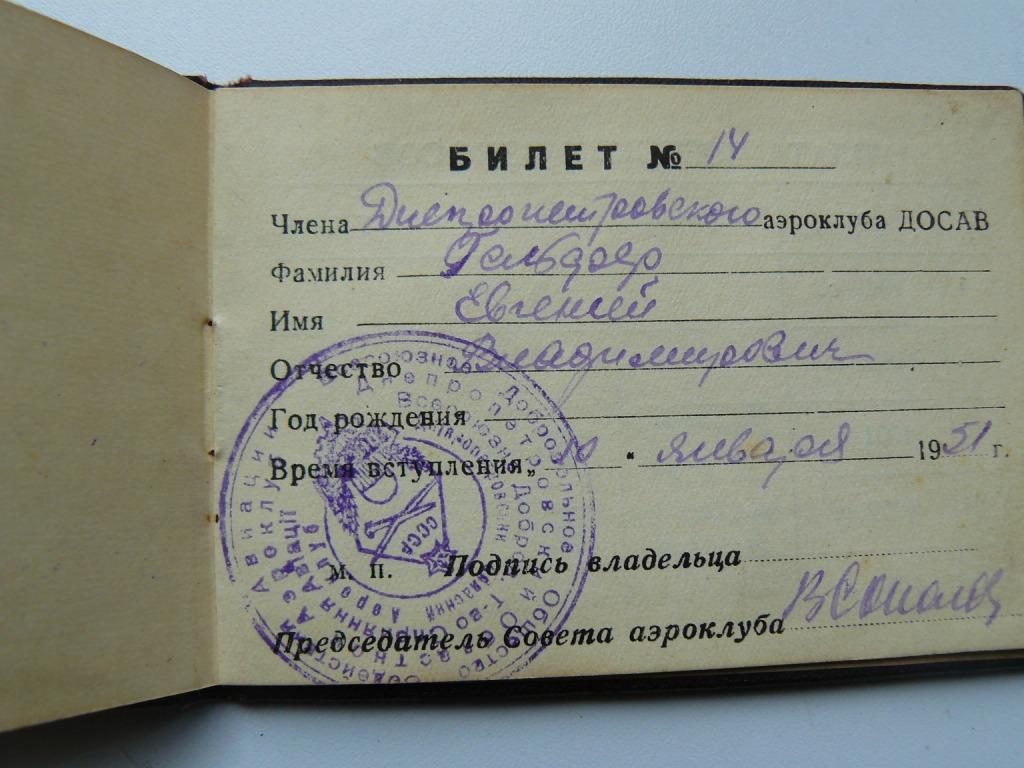 БИЛЕТ № 14
Члена Днепропетровского аэроклуба ДОСАВ
Фамилия
Имя Евгений
Отчество Владимирович
Год рождения
Время вступления „10" января 1951 г.
м. п. Подпись владельца
Председатель Совета аэроклуба
Всесоюзное Добровольное Общество
СССР